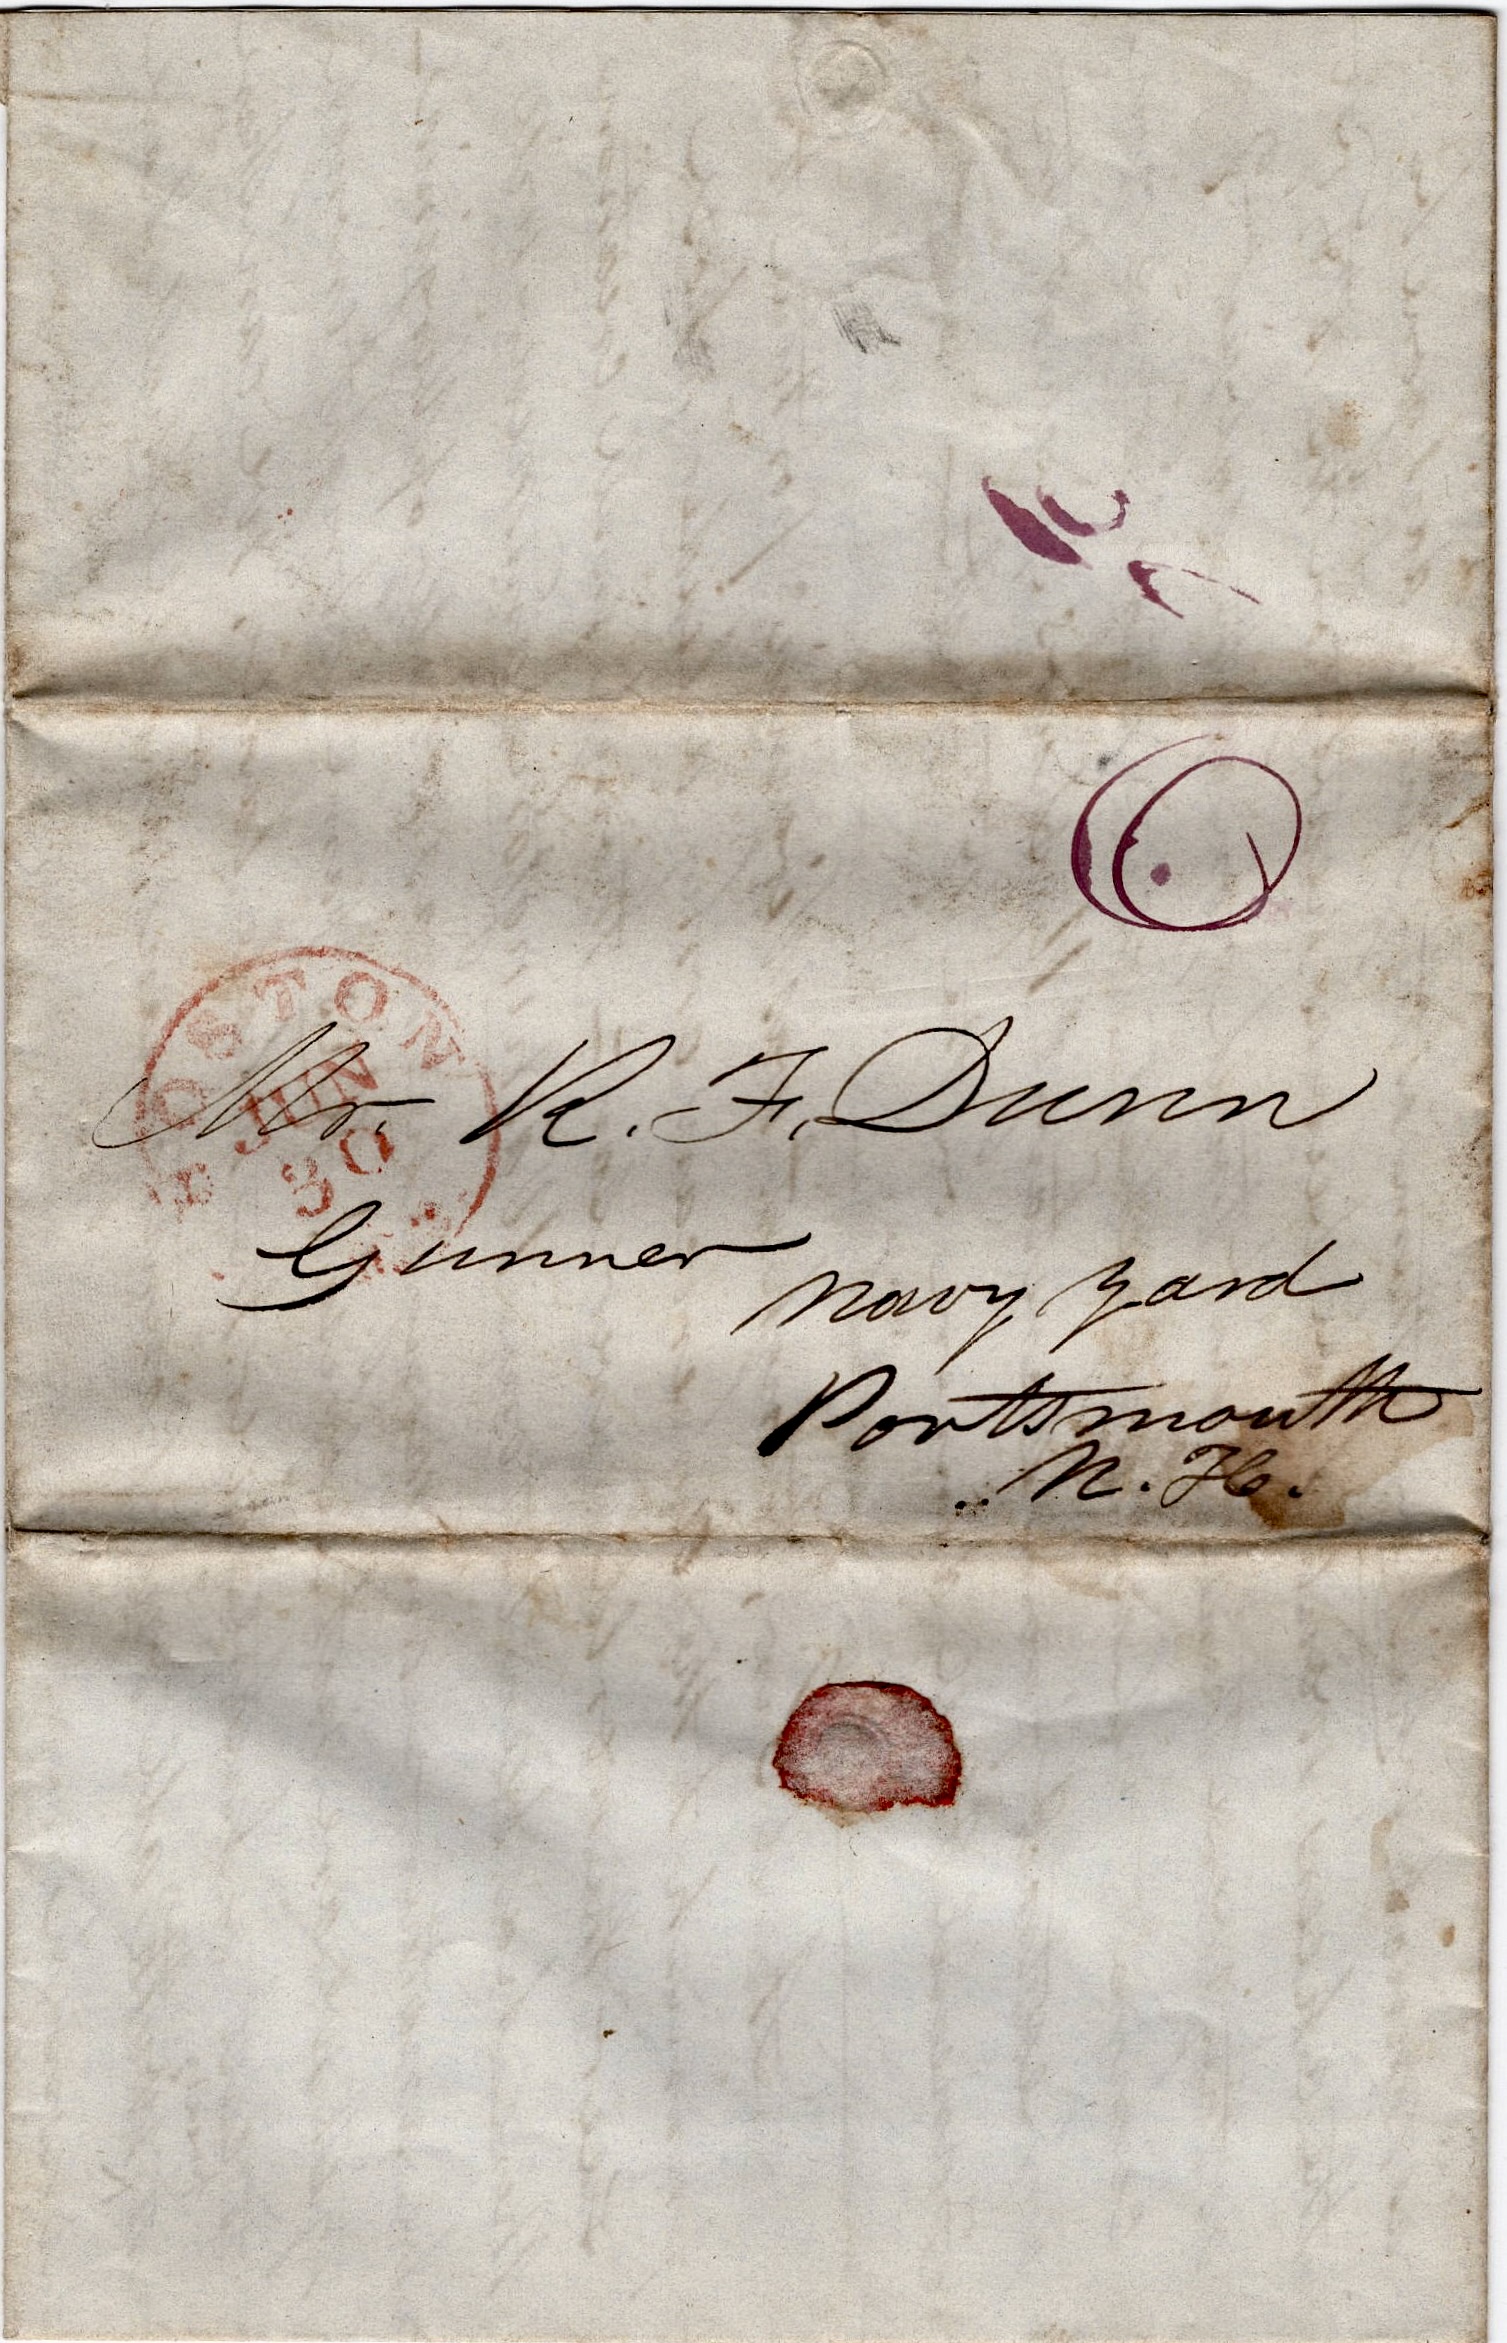 BOSTON
JUN
30
Mr. R. F. Dunn
Gunner
Navy Yard
Portsmouth
N. H.